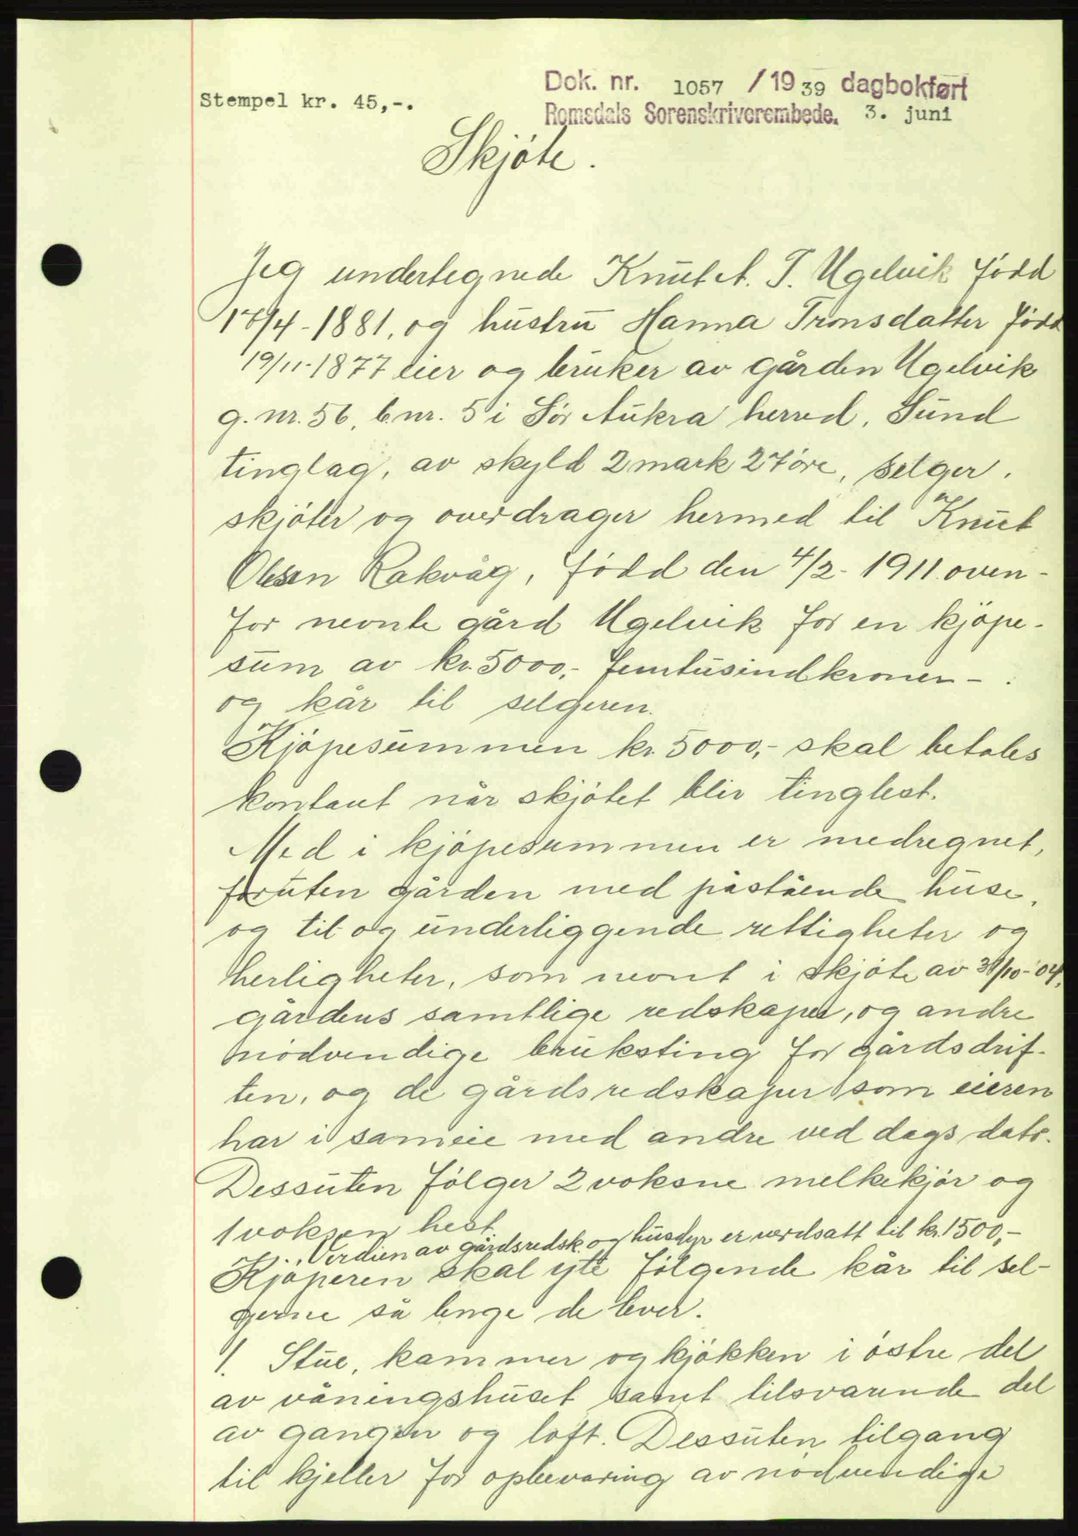 Stempel kr. 45,-.
Dok. nr. 1057 /19 39 dagbokført
Romsdals Sorenskriverembede. 3. juni
Skjöte.
Jeg undertegnede Knut A. T. Ugelvik född
17/4-1881, og hustru Hanna Tronsdatter född
19/11-1877 eier og bruker av gården Ugelvik
g.nr. 56, b.nr. 5 i Sör Aukra herred, Sund
tinglag, av skyld 2 mark 27 öre, selger,
skjöter og overdrager hermed til Knut
Olsen Rakvåg, född den 4/2-1911 oven-
for nevnte gård Ugelvik for en kjöpe-
sum av kr. 5000,- femtusindkroner-.
og kår til selgeren.
Kjöpesummen kr. 5000,- skal betales
kontant når skjötet blir tinglest.
Med i kjöpesummen er medregnet,
foruten gården med påstående huse,
og til og underliggende rettigheter og
herligheter, som nevnt i skjöte av /10-04,
gårdens samtlige redskaper, og andre
nödvendige bruksting for gårdsdrif-
ten, og de gårdsredskaper som eieren
har i sameie med andre ved dags dato.
Dessuten fölger 2 voksne melkekjör og
1 voksen hest.
Verdien av gårdsredsk. og husdyr er verdsatt til kr. 1500,-
Kjöperen skal yte fölgende kår til sel-
gerne så lenge de lever.
1. Stue, kammer og kjökken i östre del
av våningshuset samt tilsvarende del
av gangen og loft. Dessuten tilgang
til kjeller for opbevaring av nödvendige